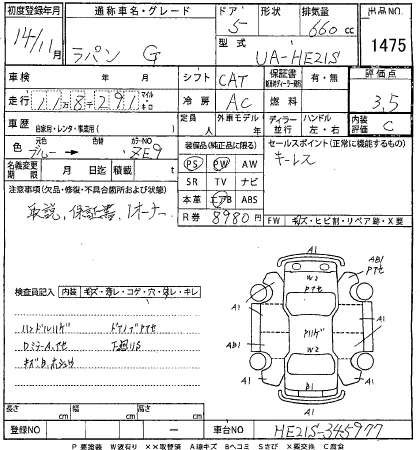 初度登録年月 通称車名・グレード ドア 形状 排気量 出品NO.
14年11月 ラパン G 5 660cc 1475
型式 UA-HE21S
車検 年 月 シフト CAT 保証書 有・無 評価点
走行 118291 マイル キロ 冷房 AC 燃料 3.5
車歴 自家用・レンタ・事業用( ) 定員 人 外車モデル 年 ディーラー 並行 ハンドル 左・右 内装評価 C
色 元色 ブルー → 色替 カラーNO ZE9
装備品(純正品に限る) セールスポイント(正常に機能するもの)
PS PW AW キーレス
名義変更 月 日迄 積載 t
SR TV ナビ
注意事項(欠品・修復・不具合箇所および状態)
本革 エアB ABS
取説、保証書、1オーナー
R券 8980円
FW キズ・ヒビ割・リペア跡・X要
検査員記入 内装 キズ・汚レ・コゲ・穴・ヌレ・キレ
ハンドルハゲ
A1
W2
AB1
A1
A1
Pハゲ
A1
AB1
W2
A1
A1
B1
A1
長さ cm 幅 cm 高さ cm
登録NO ー 車台NO HE21S-345977
P 要塗装 W 波有り ××取替済 A 線キズ B ヘコミ S サビ ×要交換 C 腐食